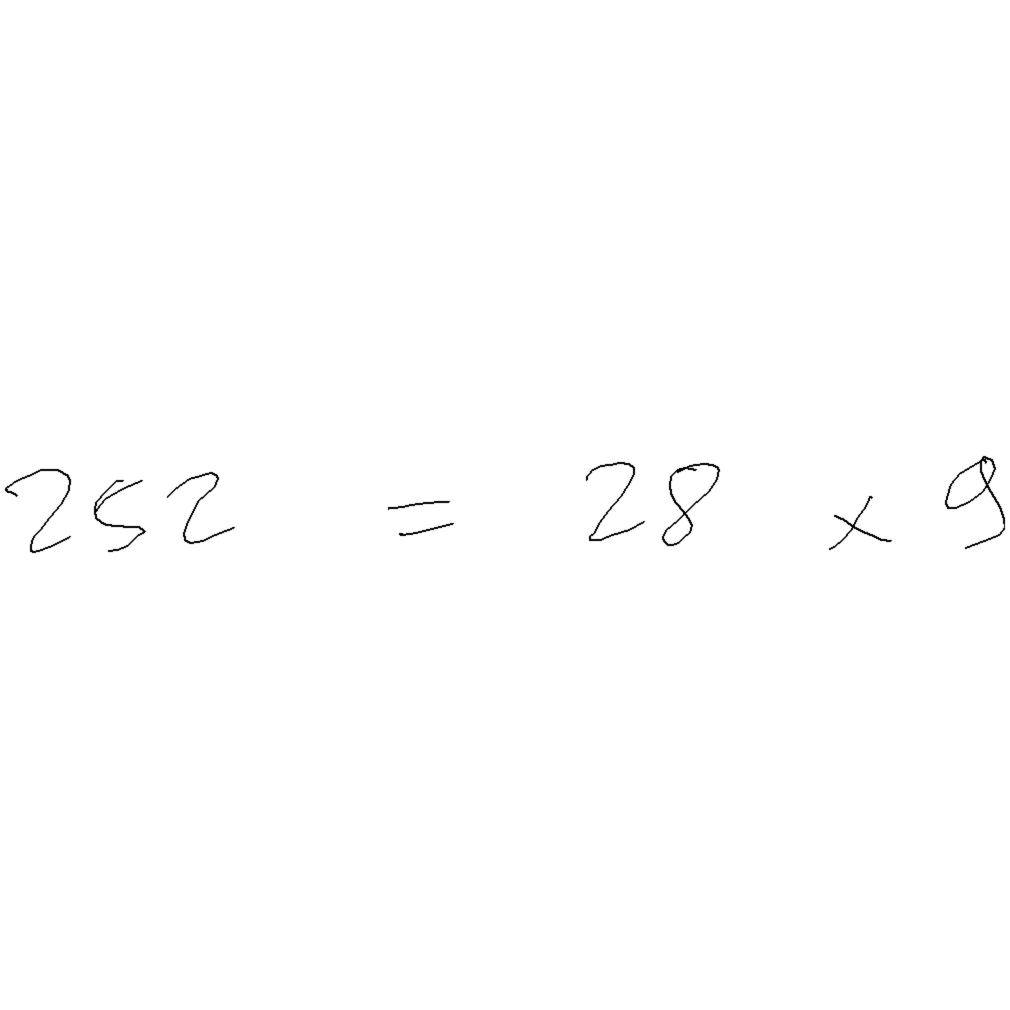 252 = 28 × 9